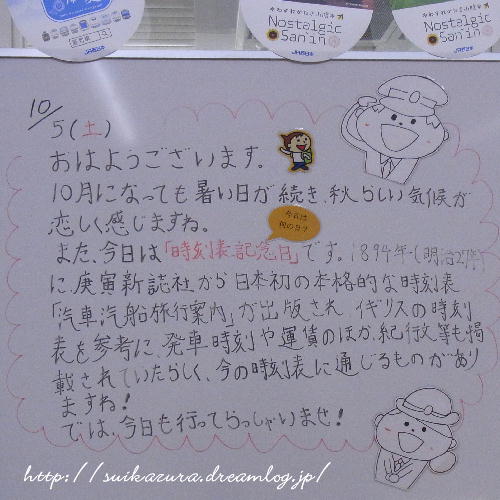 Nostalgic
San'in
JR西日本
Nostalgic
San'in
JR西日本
10/5(土)
おはようございます。
10月になっても暑い日が続き、秋らしい気候が
恋しく感じますね。
今日は
何の日?
また、今日は「時刻表記念日」です。1894年(明治27年)
に、庚寅新誌社から日本初の本格的な時刻表
「汽車汽船旅行案内」が出版され、イギリスの時刻
表を参考に、発車時刻や運賃のほか、紀行文等も掲
載されていたらしく、今の時刻表に通じるものがあり
ますね!
では、今日も行ってらっしゃいませ!
http://suikazura.dreamlog.jp/